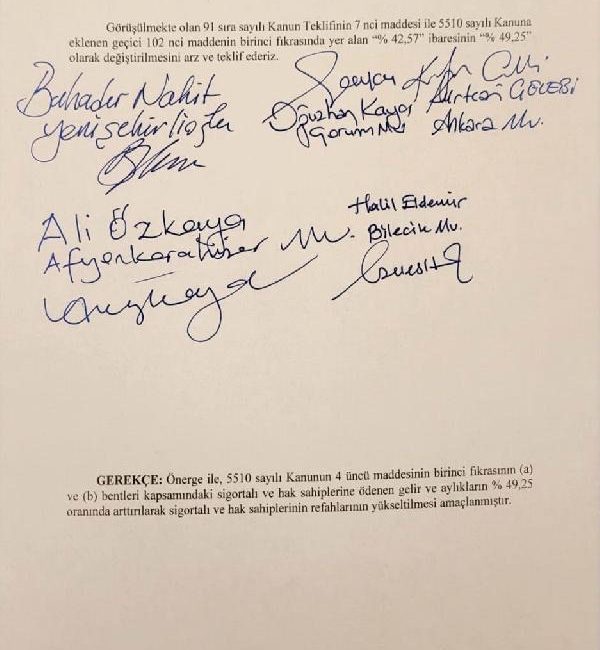 Görüşülmekte olan 91 sıra sayılı Kanun Teklifinin 7 nci maddesi ile 5510 sayılı Kanuna
eklenen geçici 102 nci maddenin birinci fıkrasında yer alan “% 42,57” ibaresinin “% 49,25”
olarak değiştirilmesini arz ve teklif ederiz.
Bahadır Nahit
Yenişehirlioğlu
Oğuzhan Kaya
Çorum Mv.
ÇELEBİ
Ankara Mv.
Ali Özkaya
Afyonkarahisar Mv.
Halil Eldemir
Bilecik Mv.
GEREKÇE: Önerge ile, 5510 sayılı Kanunun 4 üncü maddesinin birinci fıkrasının (a)
ve (b) bentleri kapsamındaki sigortalı ve hak sahiplerine ödenen gelir ve aylıkların % 49,25
oranında arttırılarak sigortalı ve hak sahiplerinin refahlarının yükseltilmesi amaçlanmıştır.